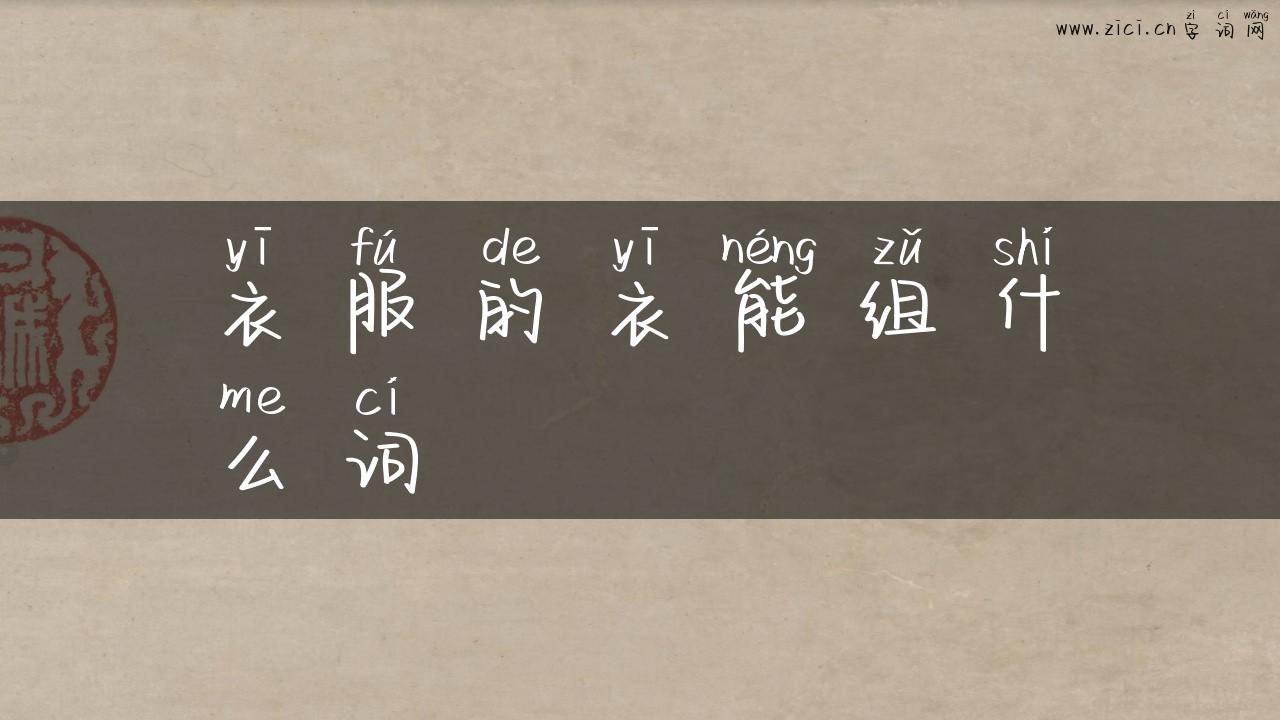 www.zici.cn
zì cí wǎng
字 词 网
yī fú de yī néng zǔ shí
衣 服 的 衣 能 组 什
me cí
么 词